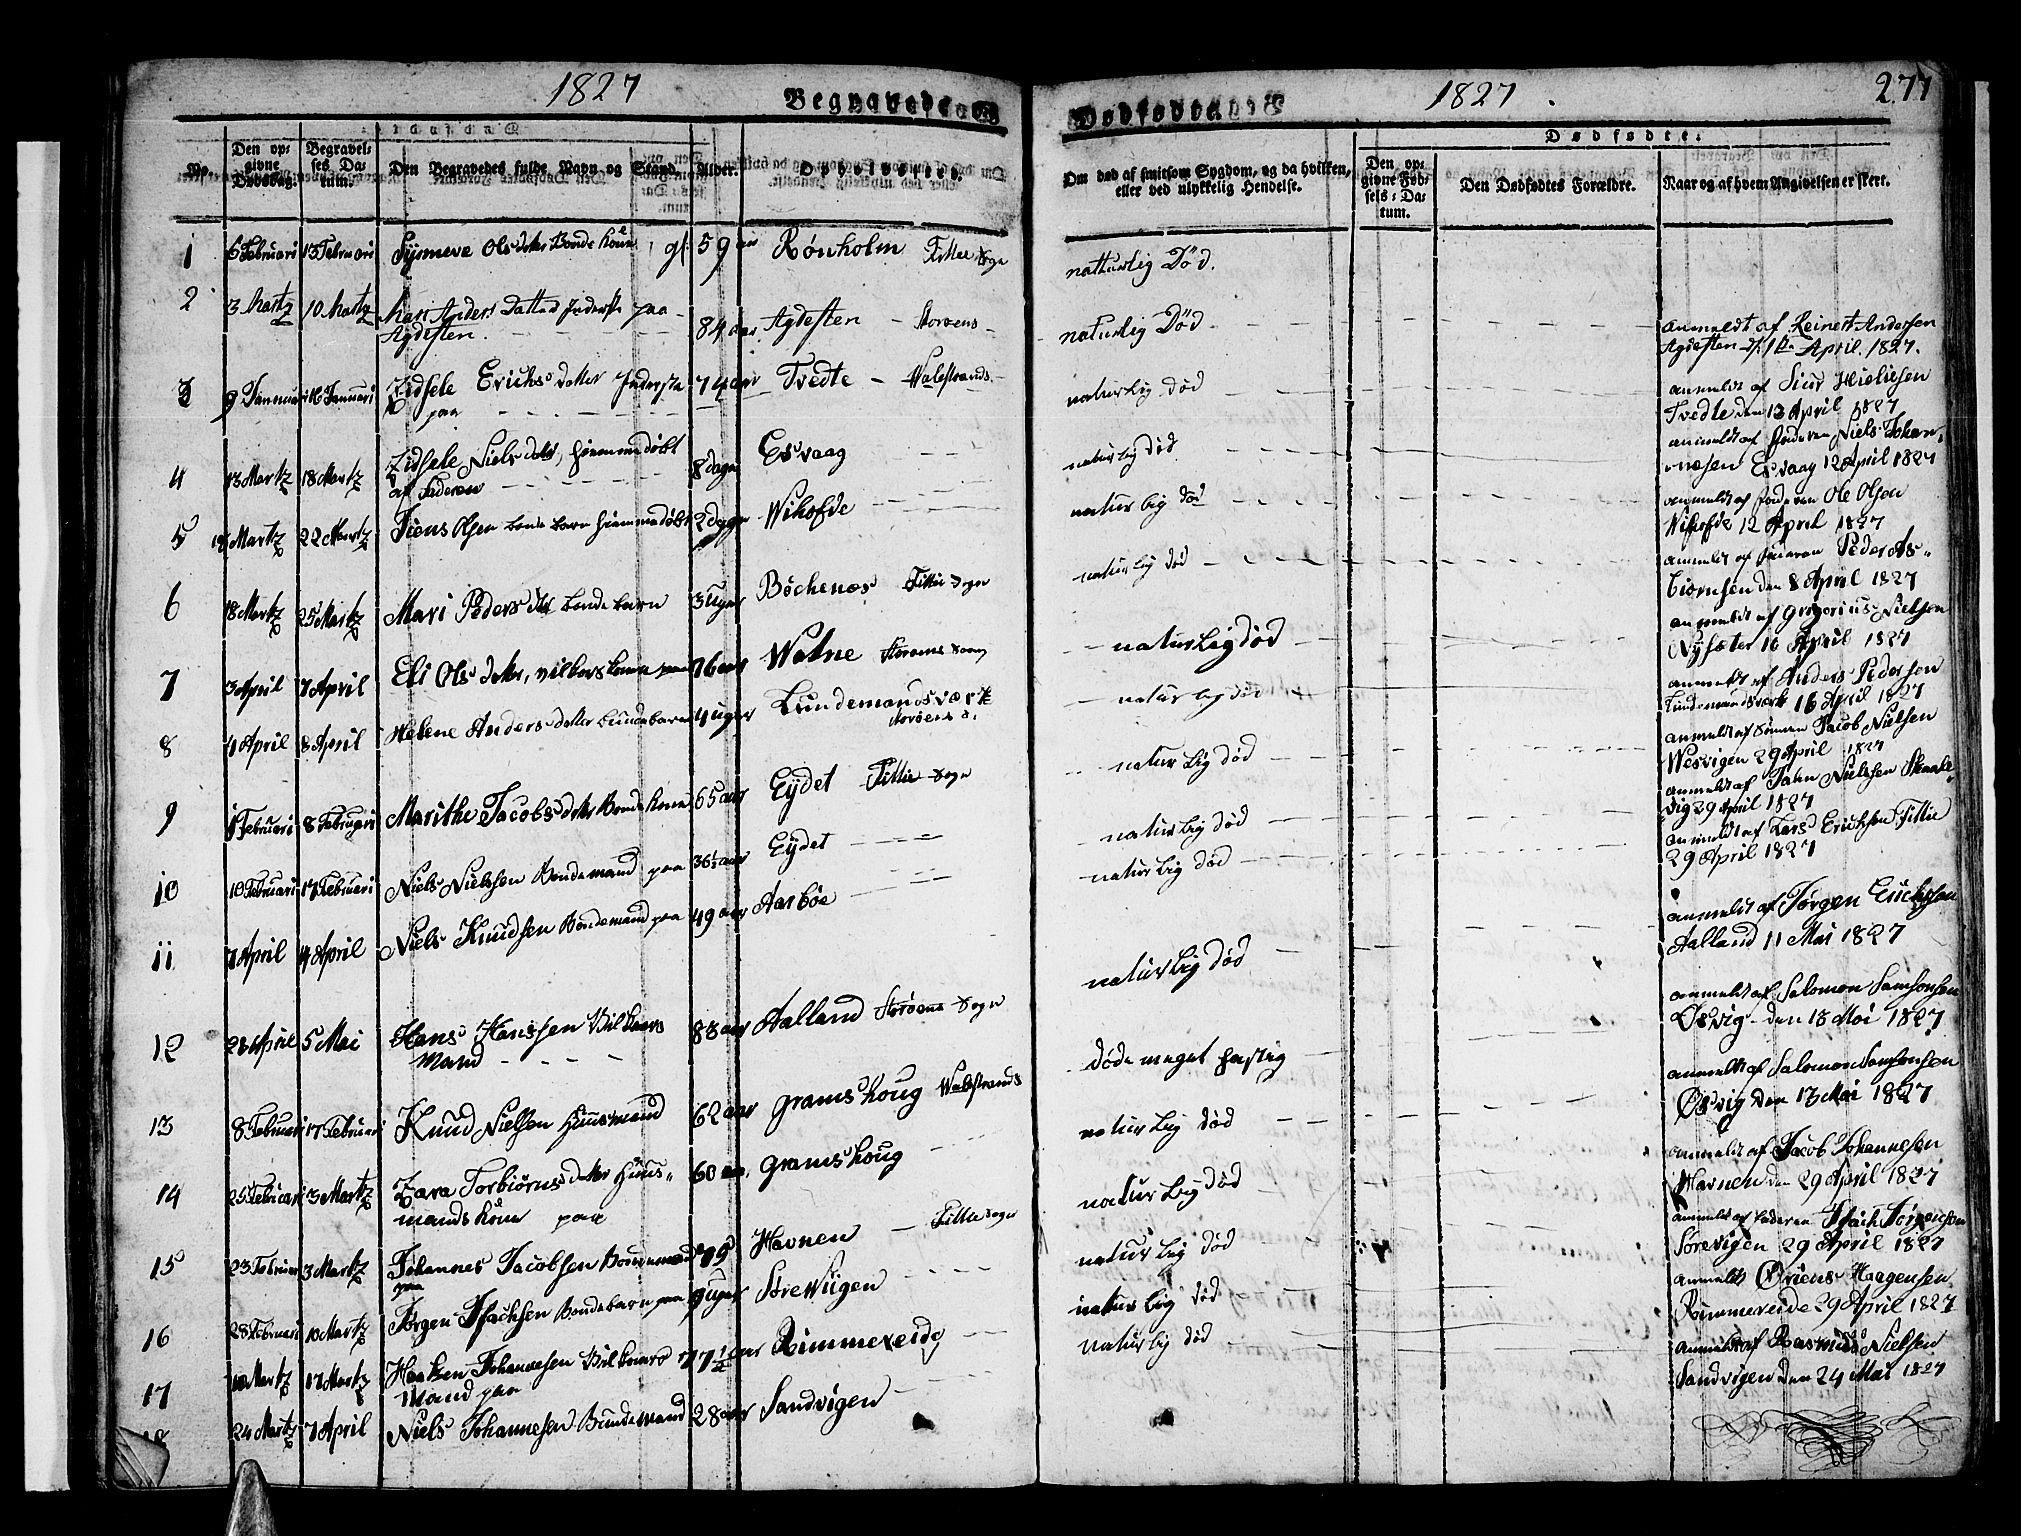 1827
Begravede
No.
Den op-
givne
Dødsdag.
Begravel-
ses Da-
tum.
Den Begravedes fulde Navn og Stand.
Alder.
Opholdssted.
1 6 Februari 13 Februari Synneve Olsdotter Bonde kone gl 59 aar Rønholm Fittie Sogn
2 3 Martz 10 Martz Mari Anders Datter Inderste paa
Agdesten 84 aar Agdesten Storøens
3 9 Januari 16 Januari Zidsele Erichsdotter Inderste 74 aar Tvedte Walestrands
paa
4 13 Martz 18 Martz Zidsele Nielsdotter, hiemmedøbt 8 dage Esvaag
af Faderen
5 18 Martz 22 Martz Jiens Olsen bonde barn hiemmedøbt 2 dage Wihofde
6 18 Martz 25 Martz Mari Peders dotter bonde barn 3 Uger Bøchenæs Fittie Sogn
7 3 April 7 April Eli Olsdotter, vilkors kone paa 76 aar Watne Storøens Sogn
8 4 April 8 April Helene Andersdotter bondebarn 4 uger Lundemandsværk
Storøens S.
9 1 Februari 8 Februari Marithe Jacobsdotter Bonde kone 65 aar Eydet Fittie Sogn
10 10 Februari 17 Februari Niels Nielssen Bondemand paa 36½ aar Eydet
11 7 April 14 April Niels Knudsen Bondemand paa 49 aar Aarbøe
12 28 April 5 Mai Hans Hanssen Vilkaars 88 aar Aalland Storøens Sogn
Mand
13 8 Februari 17 Februari Knud Nielsen Huusmand 62 aar Gramshoug Walestrands
14 25 Februari 3 Martz Zara Torbiørnsdotter Huus- 60 aar Gramshoug
mands kone paa
15 23 Februari 3 Martz Johannes Jacobsen Bondemand 79 Havnen Fittie Sogn
paa
16 28 Februari 10 Martz Jørgen Isachsen Bondebarn paa 9 uger Sørevigen
17 10 Martz 17 Martz Haaken Johannesen Vilkaars 77½ aar Rimmereide
Mand paa
18 24 Martz 7 April Niels Johannesen Bondemand 28 aar Sandvigen
Dødfødde
1827
277
Om død af smitsom Sygdom, og da hvilken,
eller ved ulykkelig Hendelse.
Dødfødte.
Den op-
givne Fød-
sels-Da-
tum.
Den Dødfødtes Forældre.
Naar og af hvem Angivelsen er skeet.
natturlig Død.
naturlig Død.
anmeldt af Reinert Andersen
Agdesten d. 1te April. 1827.
naturlig død
anmeldt af Siur Hielüesen
Tvedte den 13 April 1827
naturlig død
anmeldt af faderen Niels Johan-
nesen Esvaag 12 April 1827
naturlig død
anmeldt af faderen Ole Olsen
Wihofde 12 April 1827
naturlig død
anmeldt af faderen Peder
biørnsen den 8 April 1827
naturlig død
anmeldt af Gregorius Nielsen
Nysæter 16 April 1827
naturlig død
anmeldt af Anders Pedersen
Lundemandsværk 16 April 1827
naturlig død
anmeldt af Sønnen Jacob Nielsen
Wesvigen 29 April 1827
naturlig død
anmeldt af John Nielssen Skaale-
vig 29 April 1827
naturlig død
anmeldt af Lars Erichsen Fittie
29 April 1827
naturlig død
anmeldt af Jørgen Erichssen
Aalland 11 Mai 1827
døde meget hastig
anmeldt af Salomon Samsonsen
Øsvig den 13 Mai 1827
naturlig død
anmeldt af Salomon Samsonsen
Øsvig den 13 Mai 1827
naturlig død
anmeldt af Jacob Johannesen
Havnen den 29 April 1827
naturlig død
anmeldt af faderen Isach Jørgensen
Sørevigen 29 April 1827
naturlig død
anmeldt Haagensen
Rimmereide 29 April 1827
naturlig død
anmeldt af Rasmus Nielsen
Sandvigen den 24 Mai 1827